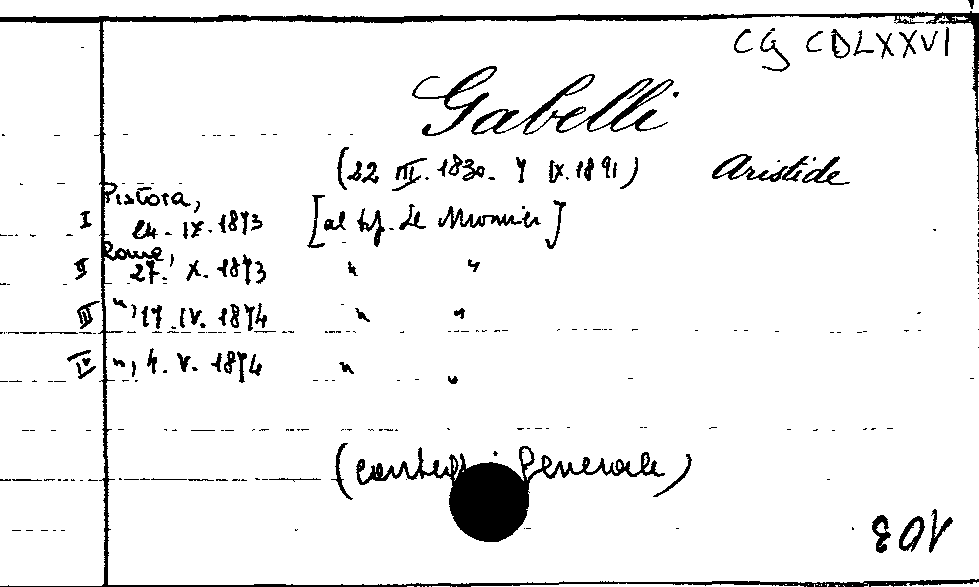 CG CDLXXVI
Gabelli
(22 III. 1830. 7 IX. 1891) Aristide
Pistoia,
I 24. IX. 1873 [al tip. Le Monnier]
Roma,
II 27. X. 1873 " "
III ", 17. IV. 1874 " "
IV ", 4. V. 1874 " "
(carteggi generale)